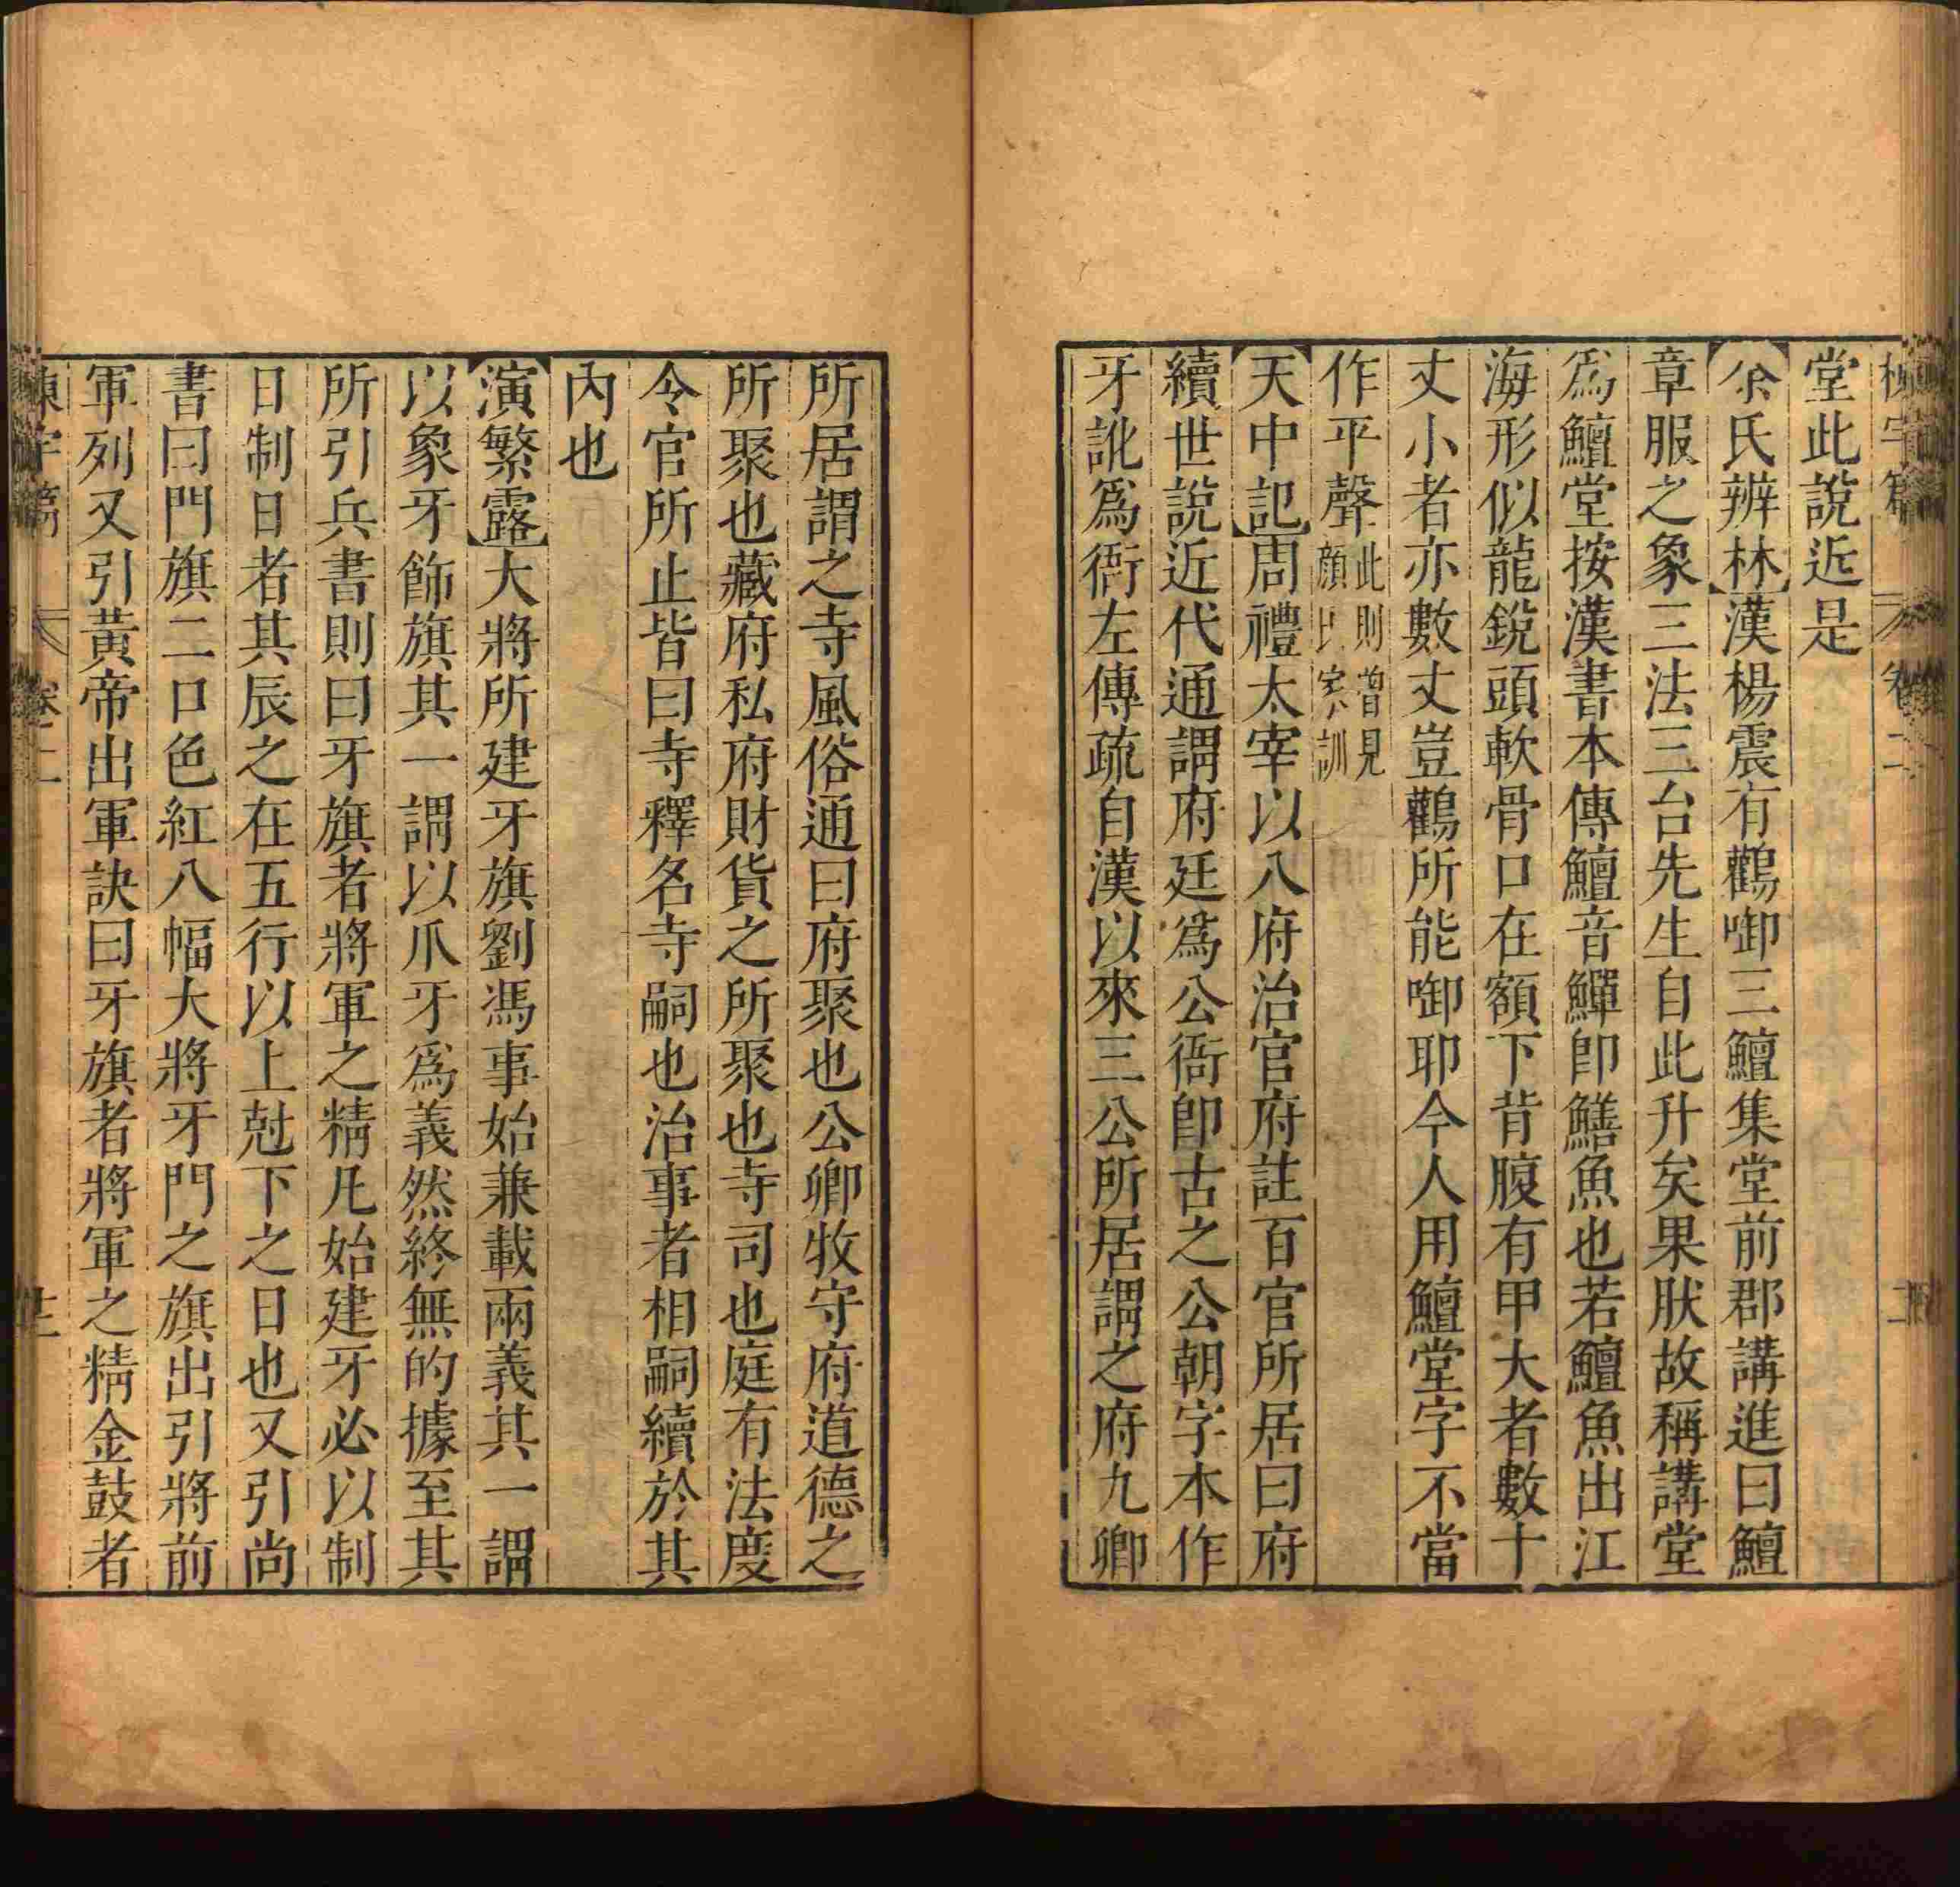 堂此說近是
【余氏辨林】漢楊震有鸛啣三鱣集堂前郡講進曰鱣
章服之象三法三台先生自此升矣果肰故稱講堂
爲鱣堂按漢書本傳鱣音鱓卽鱔魚也若鱣魚出江
海形似龍銳頭軟骨口在額下背腹有甲大者數十
丈小者亦數丈豈鸛所能啣耶今人用鱣堂字不當
作平聲此則曾見顏氏家訓
【天中記】周禮太宰以八府治官府註百官所居曰府
續世說近代通謂府廷爲公衙卽古之公朝字本作
牙訛爲衙左傳疏自漢以來三公所居謂之府九卿
所居謂之寺風俗通曰府聚也公卿牧守府道德之
所聚也藏府私府財貨之所聚也寺司也庭有法度
令官所止皆曰寺釋名寺嗣也治事者相嗣續於其
內也
【演繁露】大將所建牙旗劉馮事始兼載兩義其一謂
以象牙飾旗其一謂以爪牙爲義然終無的據至其
所引兵書則曰牙旗者將軍之精凡始建牙必以制
日制日者其辰之在五行以上尅下之日也又引尚
書曰門旗二口色紅八幅大將牙門之旗出引將前
軍列又引黃帝出軍訣曰牙旗者將軍之精金鼓者
卷二